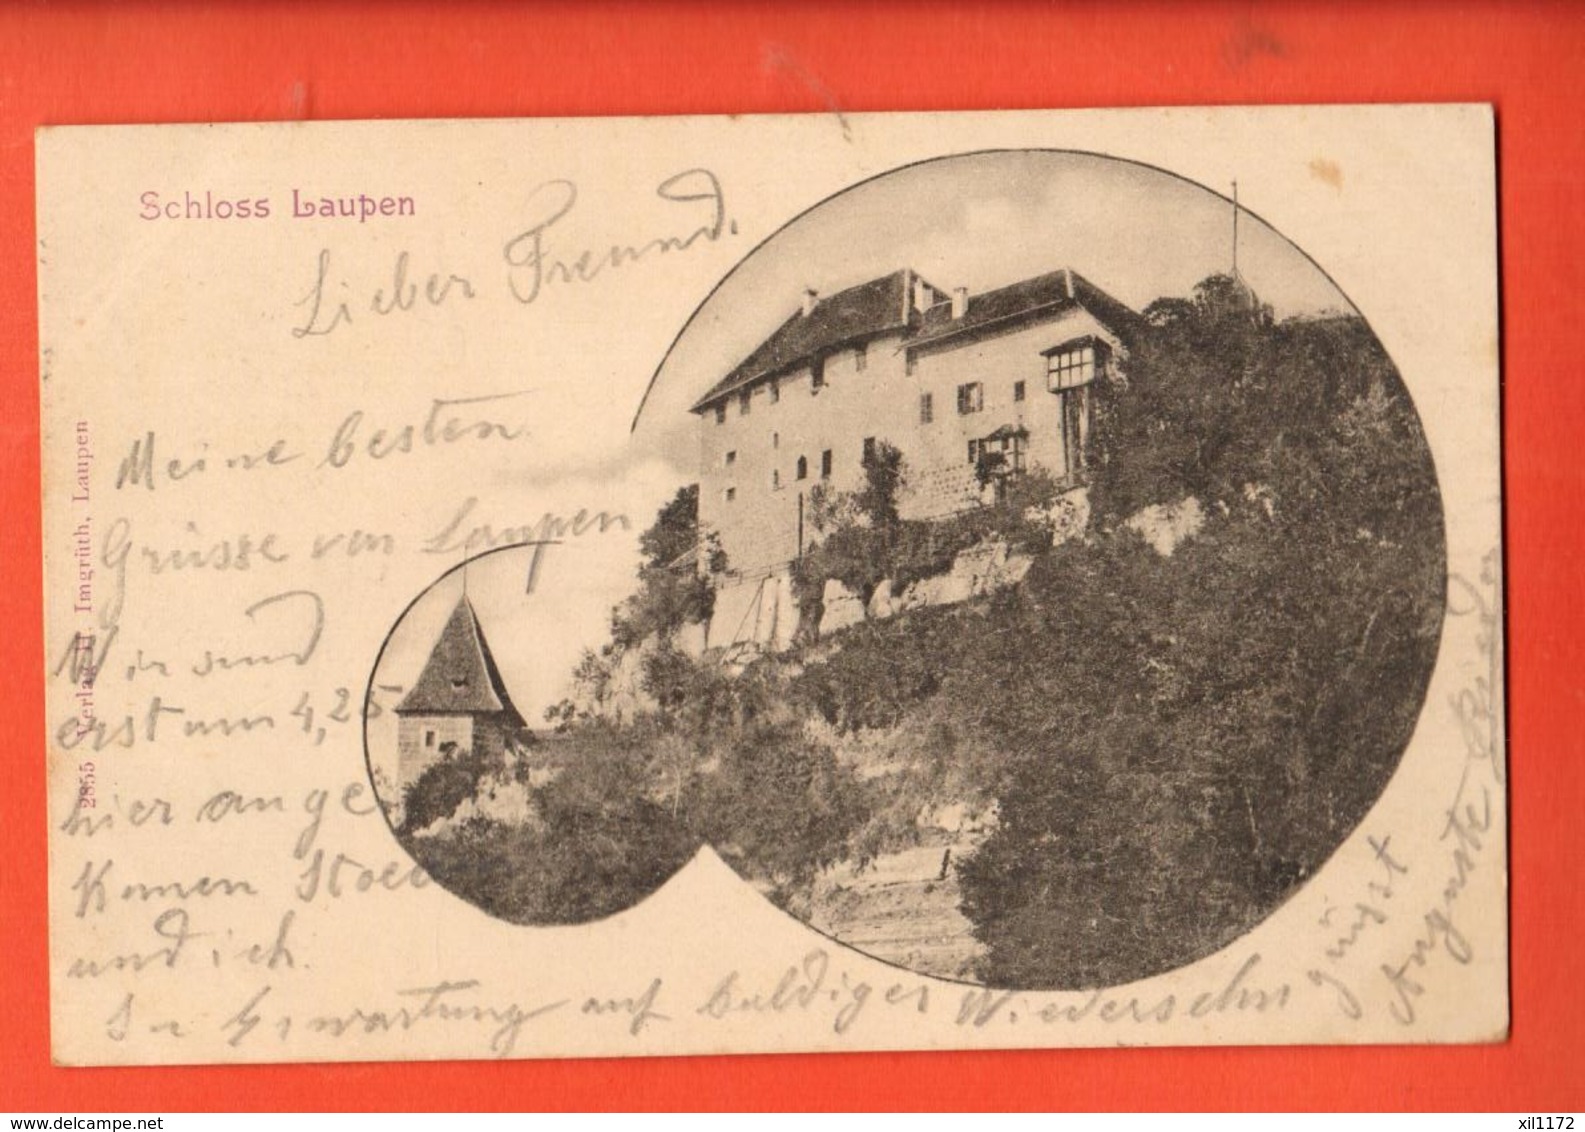 Schloss Laupen
Lieber Freund.
Meine besten
Grüsse von Laupen
Wir sind
erst um 4,25
hier ange
kommen
und ich.
In Erwartung auf baldiges Wiedersehn
grüsst
Auguste
2855 Verlag H. Imgrüth, Laupen
delcampe.net
xil1172